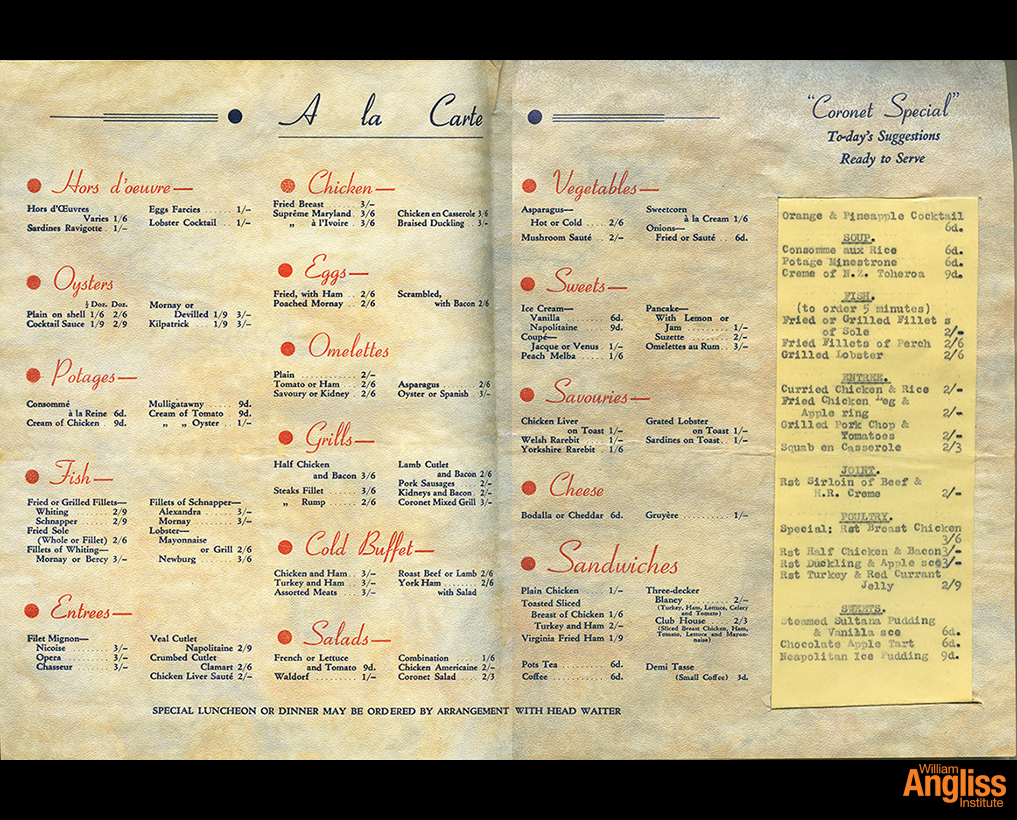 A la Carte
Hors d'oeuvre—
Hors d'Œuvres
Varies 1/6
Sardines Ravigotte . 1/–
Eggs Farcies ...... 1/–
Lobster Cocktail .... 1/–
Oysters
½ Doz. Doz.
Plain on shell 1/6 2/6
Cocktail Sauce 1/9 2/9
Mornay or
Devilled 1/9 3/–
Kilpatrick ... 1/9 3/–
Potages—
Consommé
à la Reine 6d.
Cream of Chicken . 9d.
Mulligatawny ..... 9d.
Cream of Tomato . 9d.
„ „ Oyster . 1/–
Fish—
Fried or Grilled Fillets—
Whiting ........ 2/9
Schnapper ...... 2/9
Fried Sole
(Whole or Fillet) 2/6
Fillets of Whiting—
Mornay or Bercy 3/–
Fillets of Schnapper—
Alexandra ...... 3/–
Mornay ........ 3/–
Lobster—
Mayonnaise
or Grill 2/6
Newburg ...... 3/6
Entrees—
Filet Mignon—
Nicoise ......... 3/–
Opera .......... 3/–
Chasseur ....... 3/–
Veal Cutlet
Napolitaine 2/9
Crumbed Cutlet
Clamart 2/6
Chicken Liver Sauté 2/–
Chicken—
Fried Breast ...... 3/–
Suprême Maryland . 3/6
„ à l'Ivoire . 3/6
Chicken en Casserole 3/6
Braised Duckling .. 3/–
Eggs—
Fried, with Ham .. 2/6
Poached Mornay .. 2/6
Scrambled,
with Bacon 2/6
Omelettes
Plain ............ 2/–
Tomato or Ham .. 2/6
Savoury or Kidney . 2/6
Asparagus ....... 2/6
Oyster or Spanish . 3/–
Grills—
Half Chicken
and Bacon 3/6
Steaks Fillet ..... 3/6
„ Rump .... 2/6
Lamb Cutlet
and Bacon 2/6
Pork Sausages .... 2/–
Kidneys and Bacon . 2/–
Coronet Mixed Grill 3/–
Cold Buffet—
Chicken and Ham . 3/–
Turkey and Ham .. 3/–
Assorted Meats ... 3/–
Roast Beef or Lamb 2/6
York Ham ....... 2/6
with Salad
Salads—
French or Lettuce
and Tomato 9d.
Waldorf ......... 1/–
Combination ..... 1/6
Chicken Americaine 2/–
Coronet Salad .... 2/3
Vegetables—
Asparagus—
Hot or Cold .... 2/6
Mushroom Sauté .. 2/–
Sweetcorn
à la Cream 1/6
Onions—
Fried or Sauté .. 6d.
Sweets—
Ice Cream—
Vanilla ......... 6d.
Napolitaine ..... 9d.
Coupe—
Jacque or Venus . 1/–
Peach Melba ..... 1/6
Pancake—
With Lemon or
Jam .......... 1/–
Suzette ........ 2/–
Omelettes au Rum . 3/–
Savouries—
Chicken Liver
on Toast 1/–
Welsh Rarebit .... 1/–
Yorkshire Rarebit . 1/6
Grated Lobster
on Toast 1/–
Sardines on Toast . 1/–
Cheese
Bodalla or Cheddar 6d.
Gruyère ......... 1/–
Sandwiches
Plain Chicken .... 1/–
Toasted Sliced
Breast of Chicken 1/6
Turkey and Ham 2/–
Virginia Fried Ham 1/9
Three-decker
Blaney ......... 2/–
(Turkey, Ham, Lettuce, Celery
and Tomato)
Club House ..... 2/3
(Sliced Breast Chicken, Ham,
Tomato, Lettuce and Mayon-
naise)
Pots Tea ........ 6d.
Coffee ........... 6d.
Demi Tasse
(Small Coffee) 3d.
SPECIAL LUNCHEON OR DINNER MAY BE ORDERED BY ARRANGEMENT WITH HEAD WAITER
"Coronet Special"
To-day's Suggestions
Ready to Serve
Orange & Pineapple Cocktail
6d.
SOUP.
Consomme aux Rice 6d.
Potage Minestrone 6d.
Creme of N.Z. Toheroa 9d.
FISH.
(to order 5 minutes)
Fried or Grilled Fillet s
of Sole 2/-
Fried Fillets of Perch 2/6
Grilled Lobster 2/6
ENTREE.
Curried Chicken & Rice 2/-
Fried Chicken Leg &
Apple ring 2/-
Grilled Pork Chop &
Tomatoes 2/-
Squab en Casserole 2/3
JOINT.
Rst Sirloin of Beef &
H.R. Creme 2/-
POULTRY.
Special: Rst Breast Chicken
3/6
Rst Half Chicken & Bacon 3/-
Rst Duckling & Apple sce 3/-
Rst Turkey & Red Currant
Jelly 2/9
SWEETS.
Steamed Sultana Pudding
& Vanilla sce 6d.
Chocolate Apple Tart 6d.
Neapolitan Ice Pudding 9d.
William
Angliss
Institute